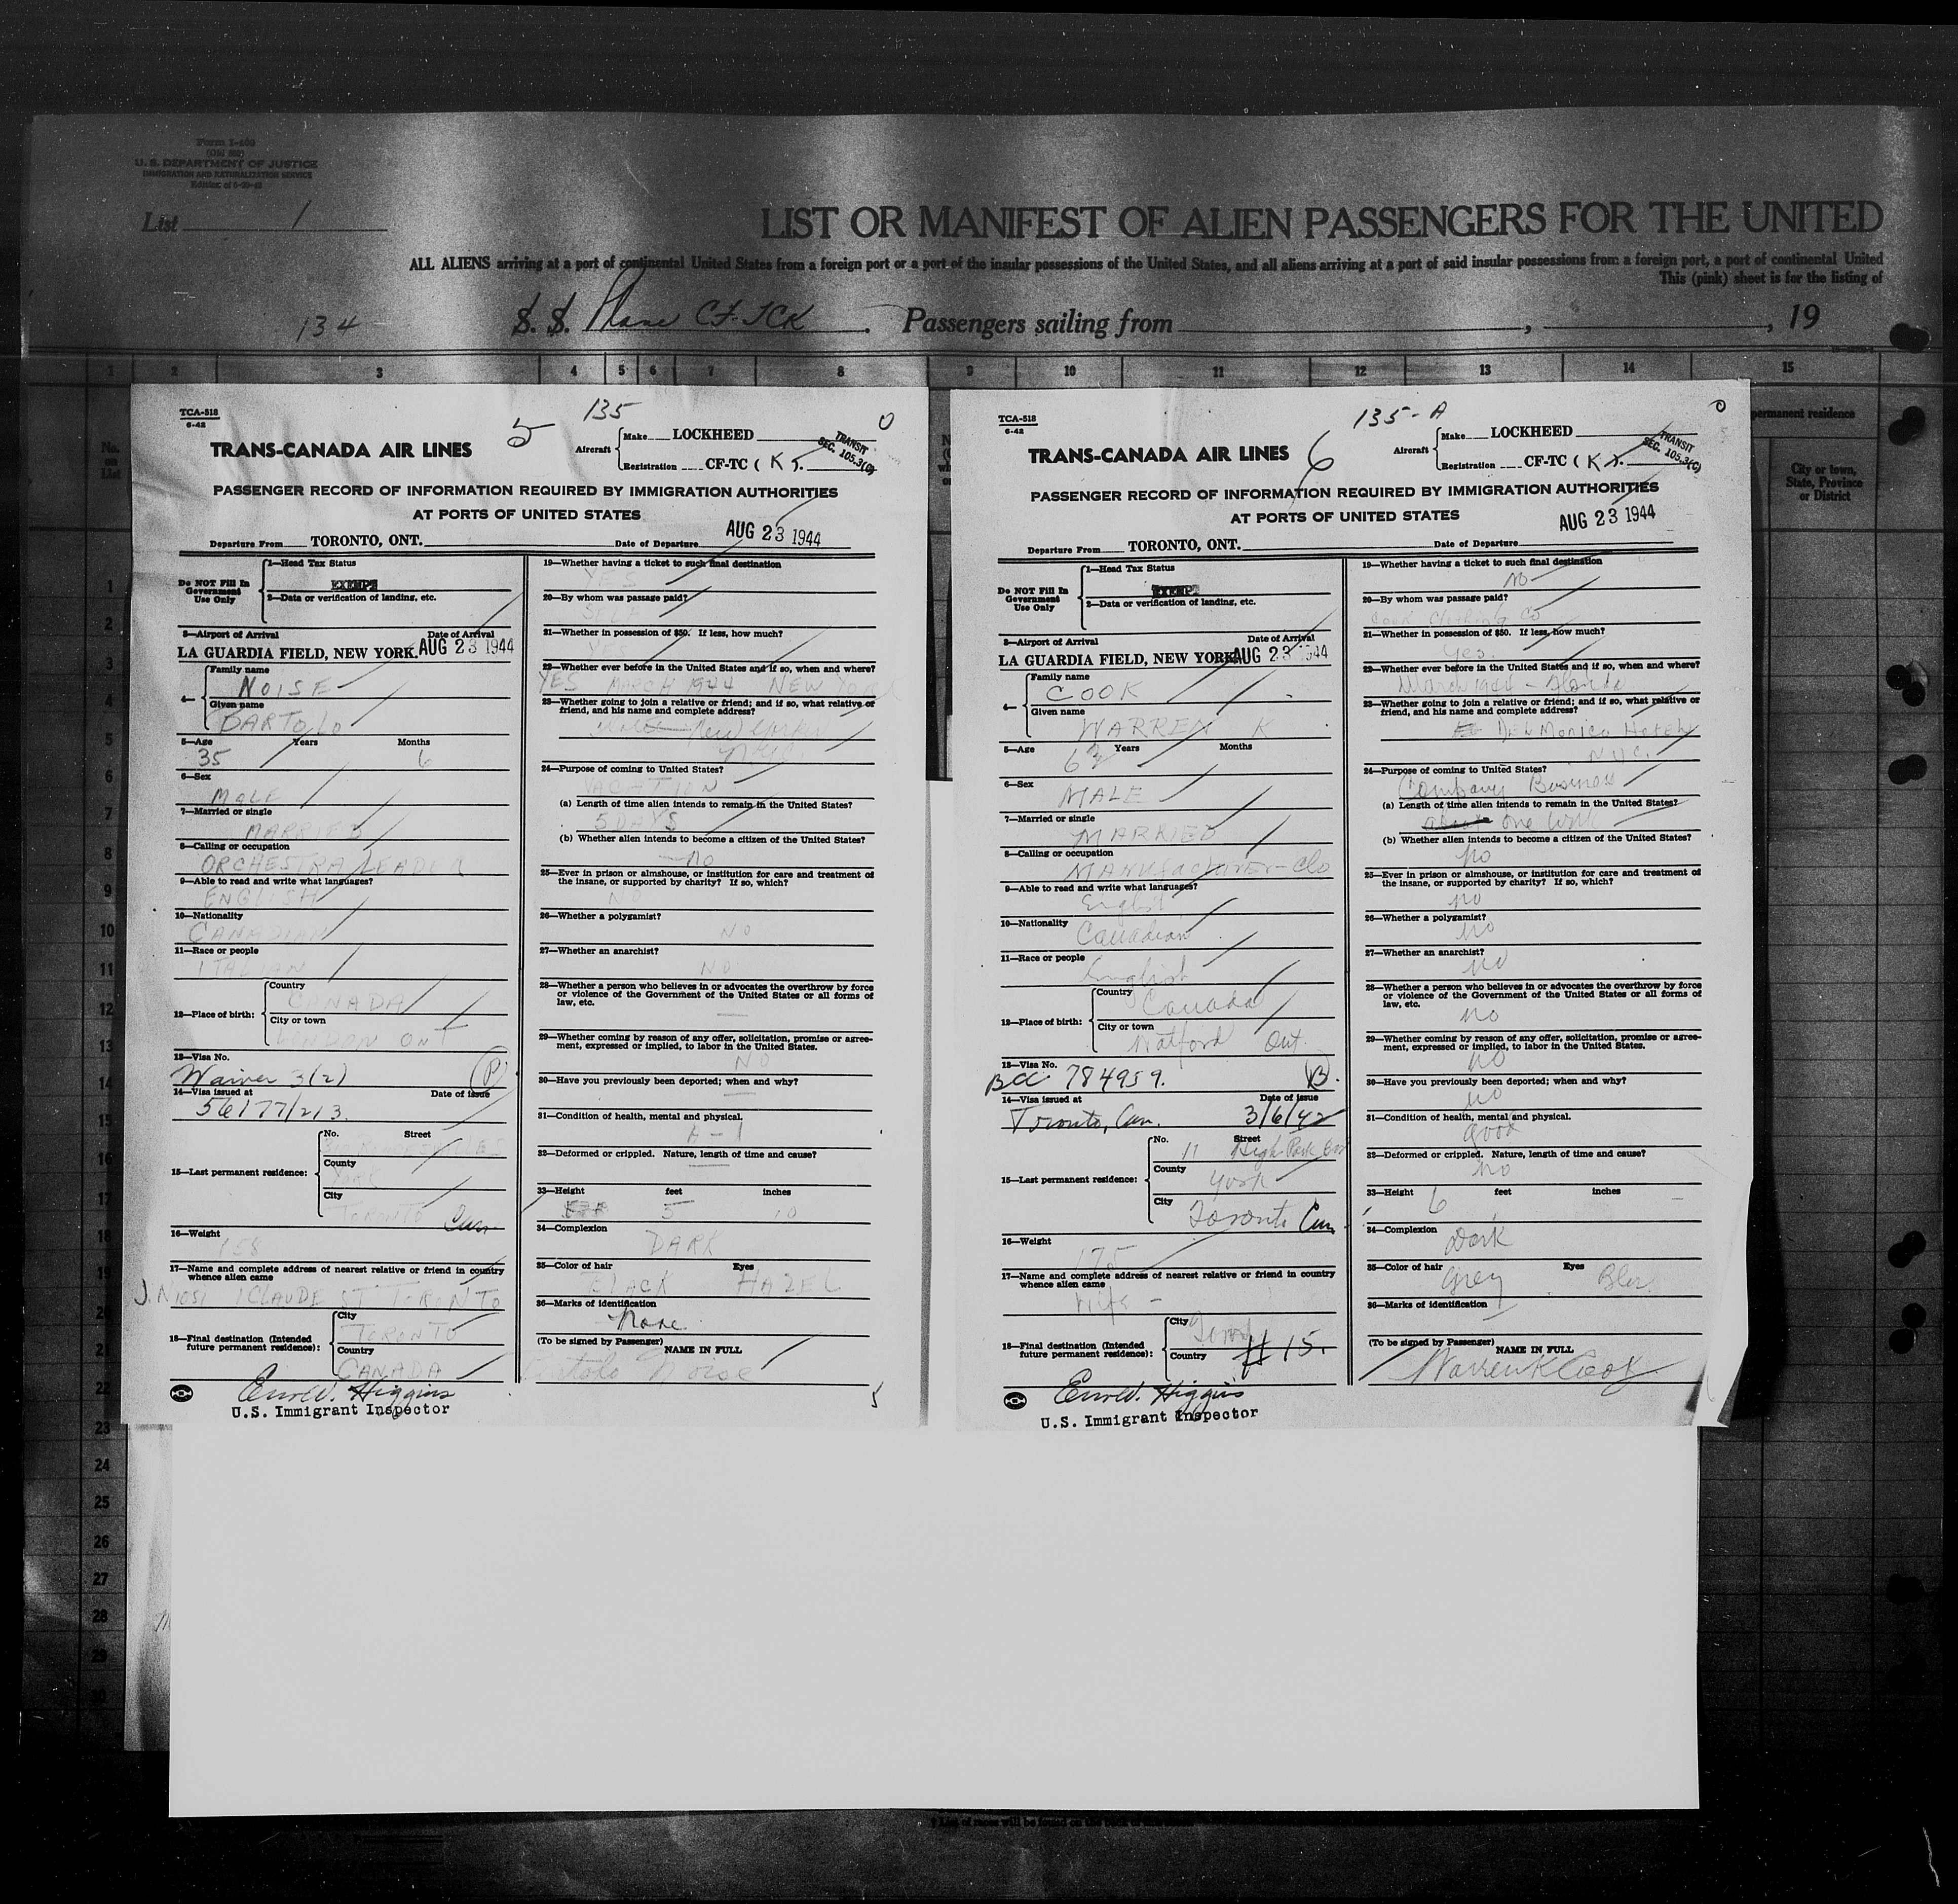 Form I-466
(Old 689)
U. S. DEPARTMENT OF JUSTICE
IMMIGRATION AND NATURALIZATION SERVICE
List 1
LIST OR MANIFEST OF ALIEN PASSENGERS FOR THE UNITED
ALL ALIENS arriving at a port of continental United States from a foreign port or a port of the insular possessions of the United States, and all aliens arriving at a port of said insular possessions from a foreign port, a port of continental United
This (pink) sheet is for the listing of
134 S. S. Plane CF-TCK . Passengers sailing from , , 19
1 2 3 4 5 6 7 8 9 10 11 12 13 14 15
permanent residence
No. on List
City or town, State, Province or District
TCA-518
6-42
135
5
0
TRANS-CANADA AIR LINES
Aircraft Make LOCKHEED
Registration CF-TC ( K ).
TRANSIT
SEC. 105.3(C)
PASSENGER RECORD OF INFORMATION REQUIRED BY IMMIGRATION AUTHORITIES
AT PORTS OF UNITED STATES
AUG 23 1944
Departure From TORONTO, ONT. Date of Departure
Do NOT Fill In Government Use Only
1—Head Tax Status
EXEMPT
2—Data or verification of landing, etc.
3—Airport of Arrival Date of Arrival
LA GUARDIA FIELD, NEW YORK. AUG 23 1944
4— Family name
NOISE
Given name
BARTOLO
5—Age Years Months
35 6
6—Sex
MALE
7—Married or single
MARRIED
8—Calling or occupation
ORCHESTRA LEADER
9—Able to read and write what languages?
ENGLISH
10—Nationality
CANADIAN
11—Race or people
ITALIAN
12—Place of birth: Country
CANADA
City or town
LONDON ONT
13—Visa No.
Waiver 3(2) (P)
14—Visa issued at Date of issue
56177/213.
15—Last permanent residence: No. Street
County
YORK
City
TORONTO Can
16—Weight
158
17—Name and complete address of nearest relative or friend in country whence alien came
J. NIOSI 1 CLAUDE ST TORONTO
18—Final destination (Intended future permanent residence): City
TORONTO
Country
CANADA
U.S. Immigrant Inspector
19—Whether having a ticket to such final destination
YES
20—By whom was passage paid?
21—Whether in possession of $50. If less, how much?
YES
22—Whether ever before in the United States and if so, when and where?
YES MARCH 1944 NEW YORK
23—Whether going to join a relative or friend; and if so, what relative or friend, and his name and complete address?
New Yorker
NYC
24—Purpose of coming to United States?
VACATION
(a) Length of time alien intends to remain in the United States?
5 DAYS
(b) Whether alien intends to become a citizen of the United States?
NO
25—Ever in prison or almshouse, or institution for care and treatment of the insane, or supported by charity? If so, which?
NO
26—Whether a polygamist?
NO
27—Whether an anarchist?
NO
28—Whether a person who believes in or advocates the overthrow by force or violence of the Government of the United States or all forms of law, etc.
—
29—Whether coming by reason of any offer, solicitation, promise or agreement, expressed or implied, to labor in the United States.
NO
30—Have you previously been deported; when and why?
—
31—Condition of health, mental and physical.
A-1
32—Deformed or crippled. Nature, length of time and cause?
—
33—Height feet inches
5 10
34—Complexion
DARK
35—Color of hair Eyes
BLACK HAZEL
36—Marks of identification
None.
(To be signed by Passenger) NAME IN FULL
Bartolo Noise
5
TCA-518
6-42
135-A
6
0
TRANS-CANADA AIR LINES
Aircraft Make LOCKHEED
Registration CF-TC ( K ).
TRANSIT
SEC. 105.3(C)
PASSENGER RECORD OF INFORMATION REQUIRED BY IMMIGRATION AUTHORITIES
AT PORTS OF UNITED STATES
AUG 23 1944
Departure From TORONTO, ONT. Date of Departure
Do NOT Fill In Government Use Only
1—Head Tax Status
EXEMPT
2—Data or verification of landing, etc.
3—Airport of Arrival Date of Arrival
LA GUARDIA FIELD, NEW YORK. AUG 23 1944
4— Family name
COOK
Given name
WARREN K
5—Age Years Months
63
6—Sex
MALE
7—Married or single
MARRIED
8—Calling or occupation
MANUFACTURER—Clo
9—Able to read and write what languages?
English
10—Nationality
Canadian
11—Race or people
English
12—Place of birth: Country
Canada
City or town
Watford Ont.
13—Visa No.
BCC 784959. (B).
14—Visa issued at Date of issue
Toronto, Can. 3/6/42
15—Last permanent residence: No. Street
11 High Park
County
York
City
Toronto Can
16—Weight
175
17—Name and complete address of nearest relative or friend in country whence alien came
Wife -
18—Final destination (Intended future permanent residence): City
Country
# 15.
U.S. Immigrant Inspector
19—Whether having a ticket to such final destination
NO
20—By whom was passage paid?
Cook Clothing Co
21—Whether in possession of $50. If less, how much?
Yes.
22—Whether ever before in the United States and if so, when and where?
March 1944 - Florida
23—Whether going to join a relative or friend; and if so, what relative or friend, and his name and complete address?
Del Monico Hotel
N.Y.C.
24—Purpose of coming to United States?
Company Business
(a) Length of time alien intends to remain in the United States?
about one week
(b) Whether alien intends to become a citizen of the United States?
no
25—Ever in prison or almshouse, or institution for care and treatment of the insane, or supported by charity? If so, which?
no
26—Whether a polygamist?
no
27—Whether an anarchist?
no
28—Whether a person who believes in or advocates the overthrow by force or violence of the Government of the United States or all forms of law, etc.
no
29—Whether coming by reason of any offer, solicitation, promise or agreement, expressed or implied, to labor in the United States.
no
30—Have you previously been deported; when and why?
no
31—Condition of health, mental and physical.
good
32—Deformed or crippled. Nature, length of time and cause?
no
33—Height feet inches
6
34—Complexion
Dark
35—Color of hair Eyes
Grey Blue
36—Marks of identification
(To be signed by Passenger) NAME IN FULL
Warren K Cook